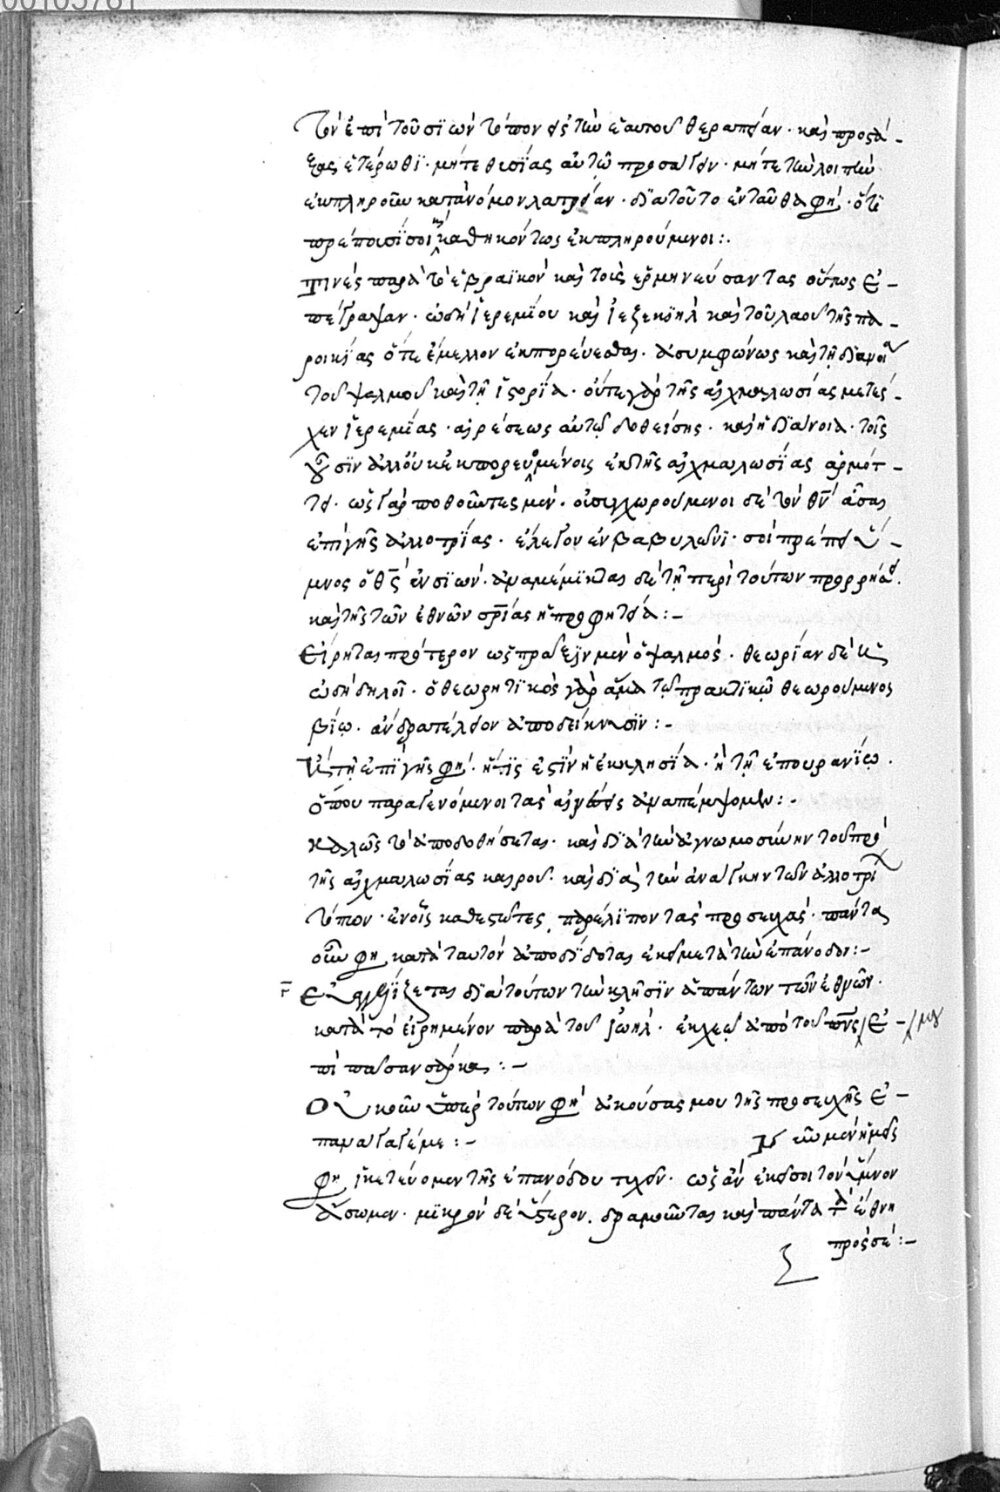 00103761
τὸν ἐπὶ τοῦ σϊὼν τόπον εἰς τὴν ἑαυτοῦ θεραπείαν· καὶ προστά-
ξας ἑτέρωθϊ· μήτε θυσίας αὐτῷ προσαγειν· μήτε τὴν λοιπὴν
ἐκπληροῦν κατὰ νόμον λατρείαν· διὰ τοῦτο ἐνταῦθα φησὶ· ὅτϊ
πρέπουσϊ σοι καθηκόντως ἐκπληρούμενοι:·
Τινὲς παρὰ τὸ ἑβραϊκὸν καὶ τοὺς ἑρμηνεύσαντας οὕτως ἐ-
πέγραψαν· ὠδὴ ἱερεμίου καὶ ἰεζεκιὴλ καὶ τοῦ λαοῦ τῆς πα-
ροικίας ὅτε ἔμελλον ἐκπορεύεσθαι· ἀσυμφώνως καὶ τῇ διανοίᾳ
τοῦ ψαλμοῦ καὶ τῇ ἱστορίᾳ· οὔτε γὰρ τῆς αἰχμαλωσίας μετέ-
χεν ἱερεμίας· αἱρέσεως αὐτῷ δοθείσης· καὶ ἡ διάνοια· τοῖς
οὖσϊν ἀλλ' οὐκ ἐκπορευομένοις ἐκ τῆς αἰχμαλωσίας ἁρμότ-
τει· ὡς γὰρ ποθοῦντες μεν· οὐ συγχωρούμενοι δὲ τὸν θν̅ ᾆσαι
ἐπὶ γῆς ἀλλοτρίας· ἔλεγον ἐν βαβυλῶνϊ· σοὶ πρέπει ὕ-
μνος ὁ θς̅ ἐν σϊών· ἀναμέμϊκται δὲ τῇ περὶ τούτων προρρήσει·
καὶ τῆς τῶν ἐθνῶν σρ̅ίας ἡ προφητεία:-
Εἴρηται πρότερον ὡς πρᾶξϊν μὲν ὁ ψαλμός· θεωρίαν δὲ ἡ
ὠδὴ δηλοῖ· ὁ θεωρητϊκὸς γὰρ ἅμα τῷ πρακτϊκῷ θεωρούμενος
βίῳ· ἄνδρα τέλειον ἀποδείκνυσϊν:-
τῇ ἐπὶ γῆς φησὶ· ἥτϊς ἐστὶν ἡ ἐκκλησία· ἢ τῇ ἐπουρανίῳ·
ὅπου παραγενόμενοι τὰς αἰνέσεις ἀναπέμψομεν:-
καλῶς τὸ ἀποδοθήσεται· καὶ διὰ τὴν ἀγνωμοσύνην τοῦ πρὸ
τῆς αἰχμαλωσίας καιροῦ· καὶ διὰ τὴν ἀνάγκην τῶν ἀλλοτρίων
τόπων· ἐν οἷς καθεστῶτες παρέλιπον τὰς προσευχάς· πάντα
οὖν φησι κατὰ ταυτὸν ἀποδίδοται ἐκεῖ μετὰ τὴν ἐπάνοδον:-
Εὐαγγελίζεται διὰ τούτων τὴν κλῆσϊν ἁπάντων τῶν ἐθνῶν·
κατὰ τὸ εἰρημένον παρὰ τοῦ ἰωήλ· ἐκχεῶ ἀπὸ τοῦ πν̅ς / ἐ- / μου
πὶ πᾶσαν σάρκα:-
Οὐκοῦν ὑπὲρ τούτων φησὶ ἀκούσας μου τῆς προσευχῆς ἐ-
πανάγαγέ με:- μεν ἡμεῖς
φησιν ἱκετεύομεν τῆς ἐπανόδου τυχεῖν· ὡς ἂν ἐκεῖ σοι τὸν ὕμνον
ᾄσωμεν· μϊκρὸν δὲ ὕστερον· δραμοῦνται καὶ πάντα τὰ ἔθνη
πρὸς σέ:-